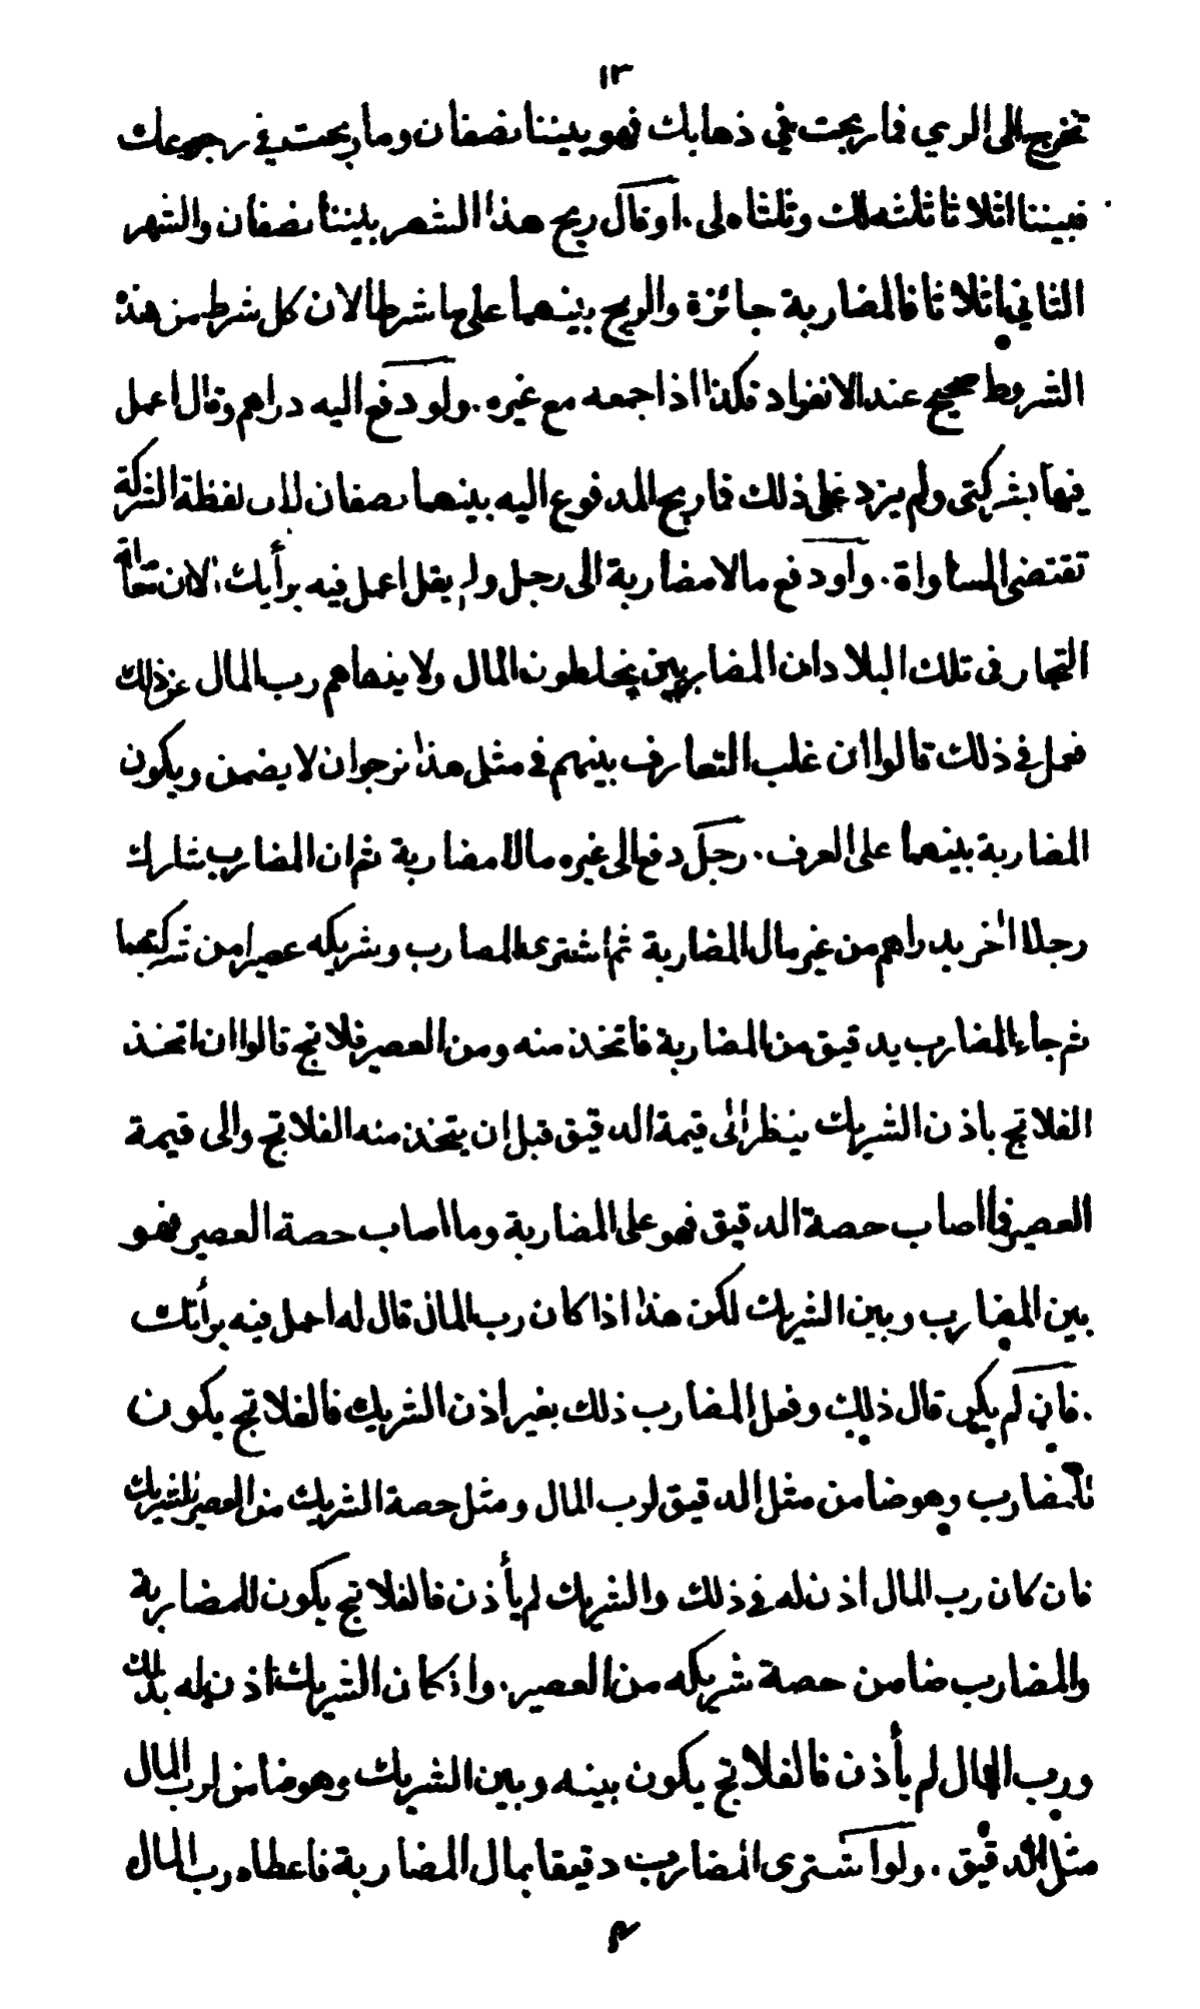 ١٣
تخرج الى الري فما ربحت في ذهابك فهو بيننا نصفان وما ربحت في رجوعك
فبيننا اثلاثا ثلثه لك وثلثاه لى . او قال ربح هذا الشهر بيننا نصفان والشهر
الثاني اثلاثا فالمضاربة جائزة والربح بينهما على ما شرطا لان كل شرط من هذه
الشروط صحيح عند الانفراد فكذا اذا جمعه مع غيره . ولو دفع اليه دراهم وقال اعمل
فيها بشركتى ولم يزد على ذلك فما ربح المدفوع اليه بينهما نصفان لان لفظة الشركة
تقتضى المساواة . ولو دفع مالا مضاربة الى رجل ولم يقل اعمل فيه برأيك الا ان معاملة
التجار فى تلك البلاد ان المضاربين يخلطون المال ولا ينهاهم رب المال عن ذلك
فعمل في ذلك قالوا ان غلب التعارف بينهم في مثل هذا نرجو ان لا يضمن ويكون
المضاربة بينهما على العرف . رجل دفع الى غيره مالا مضاربة ثم ان المضارب شارك
رجلا اخر بدراهم من غير مال المضاربة ثم اشترى المضارب وشريكه عصيرا من شركتهما
ثم جاء المضارب بدقيق من المضاربة فاتخذ منه ومن العصير فلاتج قالوا ان اتخذ
الفلاتج باذن الشريك ينظر الى قيمة الدقيق قبل ان يتخذ منه الفلاتج والى قيمة
العصير فما اصاب حصة الدقيق فهو على المضاربة وما اصاب حصة العصير فهو
بين المضارب وبين الشريك لكن هذا اذا كان رب المال قال له اعمل فيه برأيك
. فان لم يكن قال ذلك وفعل المضارب ذلك بغير اذن الشريك فالفلاتج يكون
للمضارب وهو ضامن مثل الدقيق لرب المال ومثل حصة الشريك من العصير للشريك
فان كان رب المال اذن له في ذلك والشريك لم يأذن فالفلاتج يكون للمضاربة
والمضارب ضامن حصة شريكه من العصير . وان كان الشريك اذن له بذلك
ورب المال لم يأذن فالفلاتج يكون بينه وبين الشريك وهو ضامن لرب المال
مثل الدقيق . ولو اشترى المضارب دقيقا بمال المضاربة فاعطاه رب المال